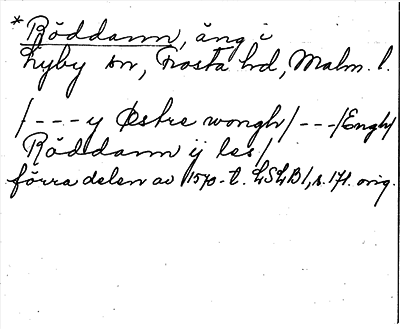 *Röddamm, äng i
Lyby sn, Frosta hd, Malm. l.
/---y Østre wongh/---/Engh/
Röddamm ij les/
förra delen av 1570-t. LSLB 1, s. 171. orig.